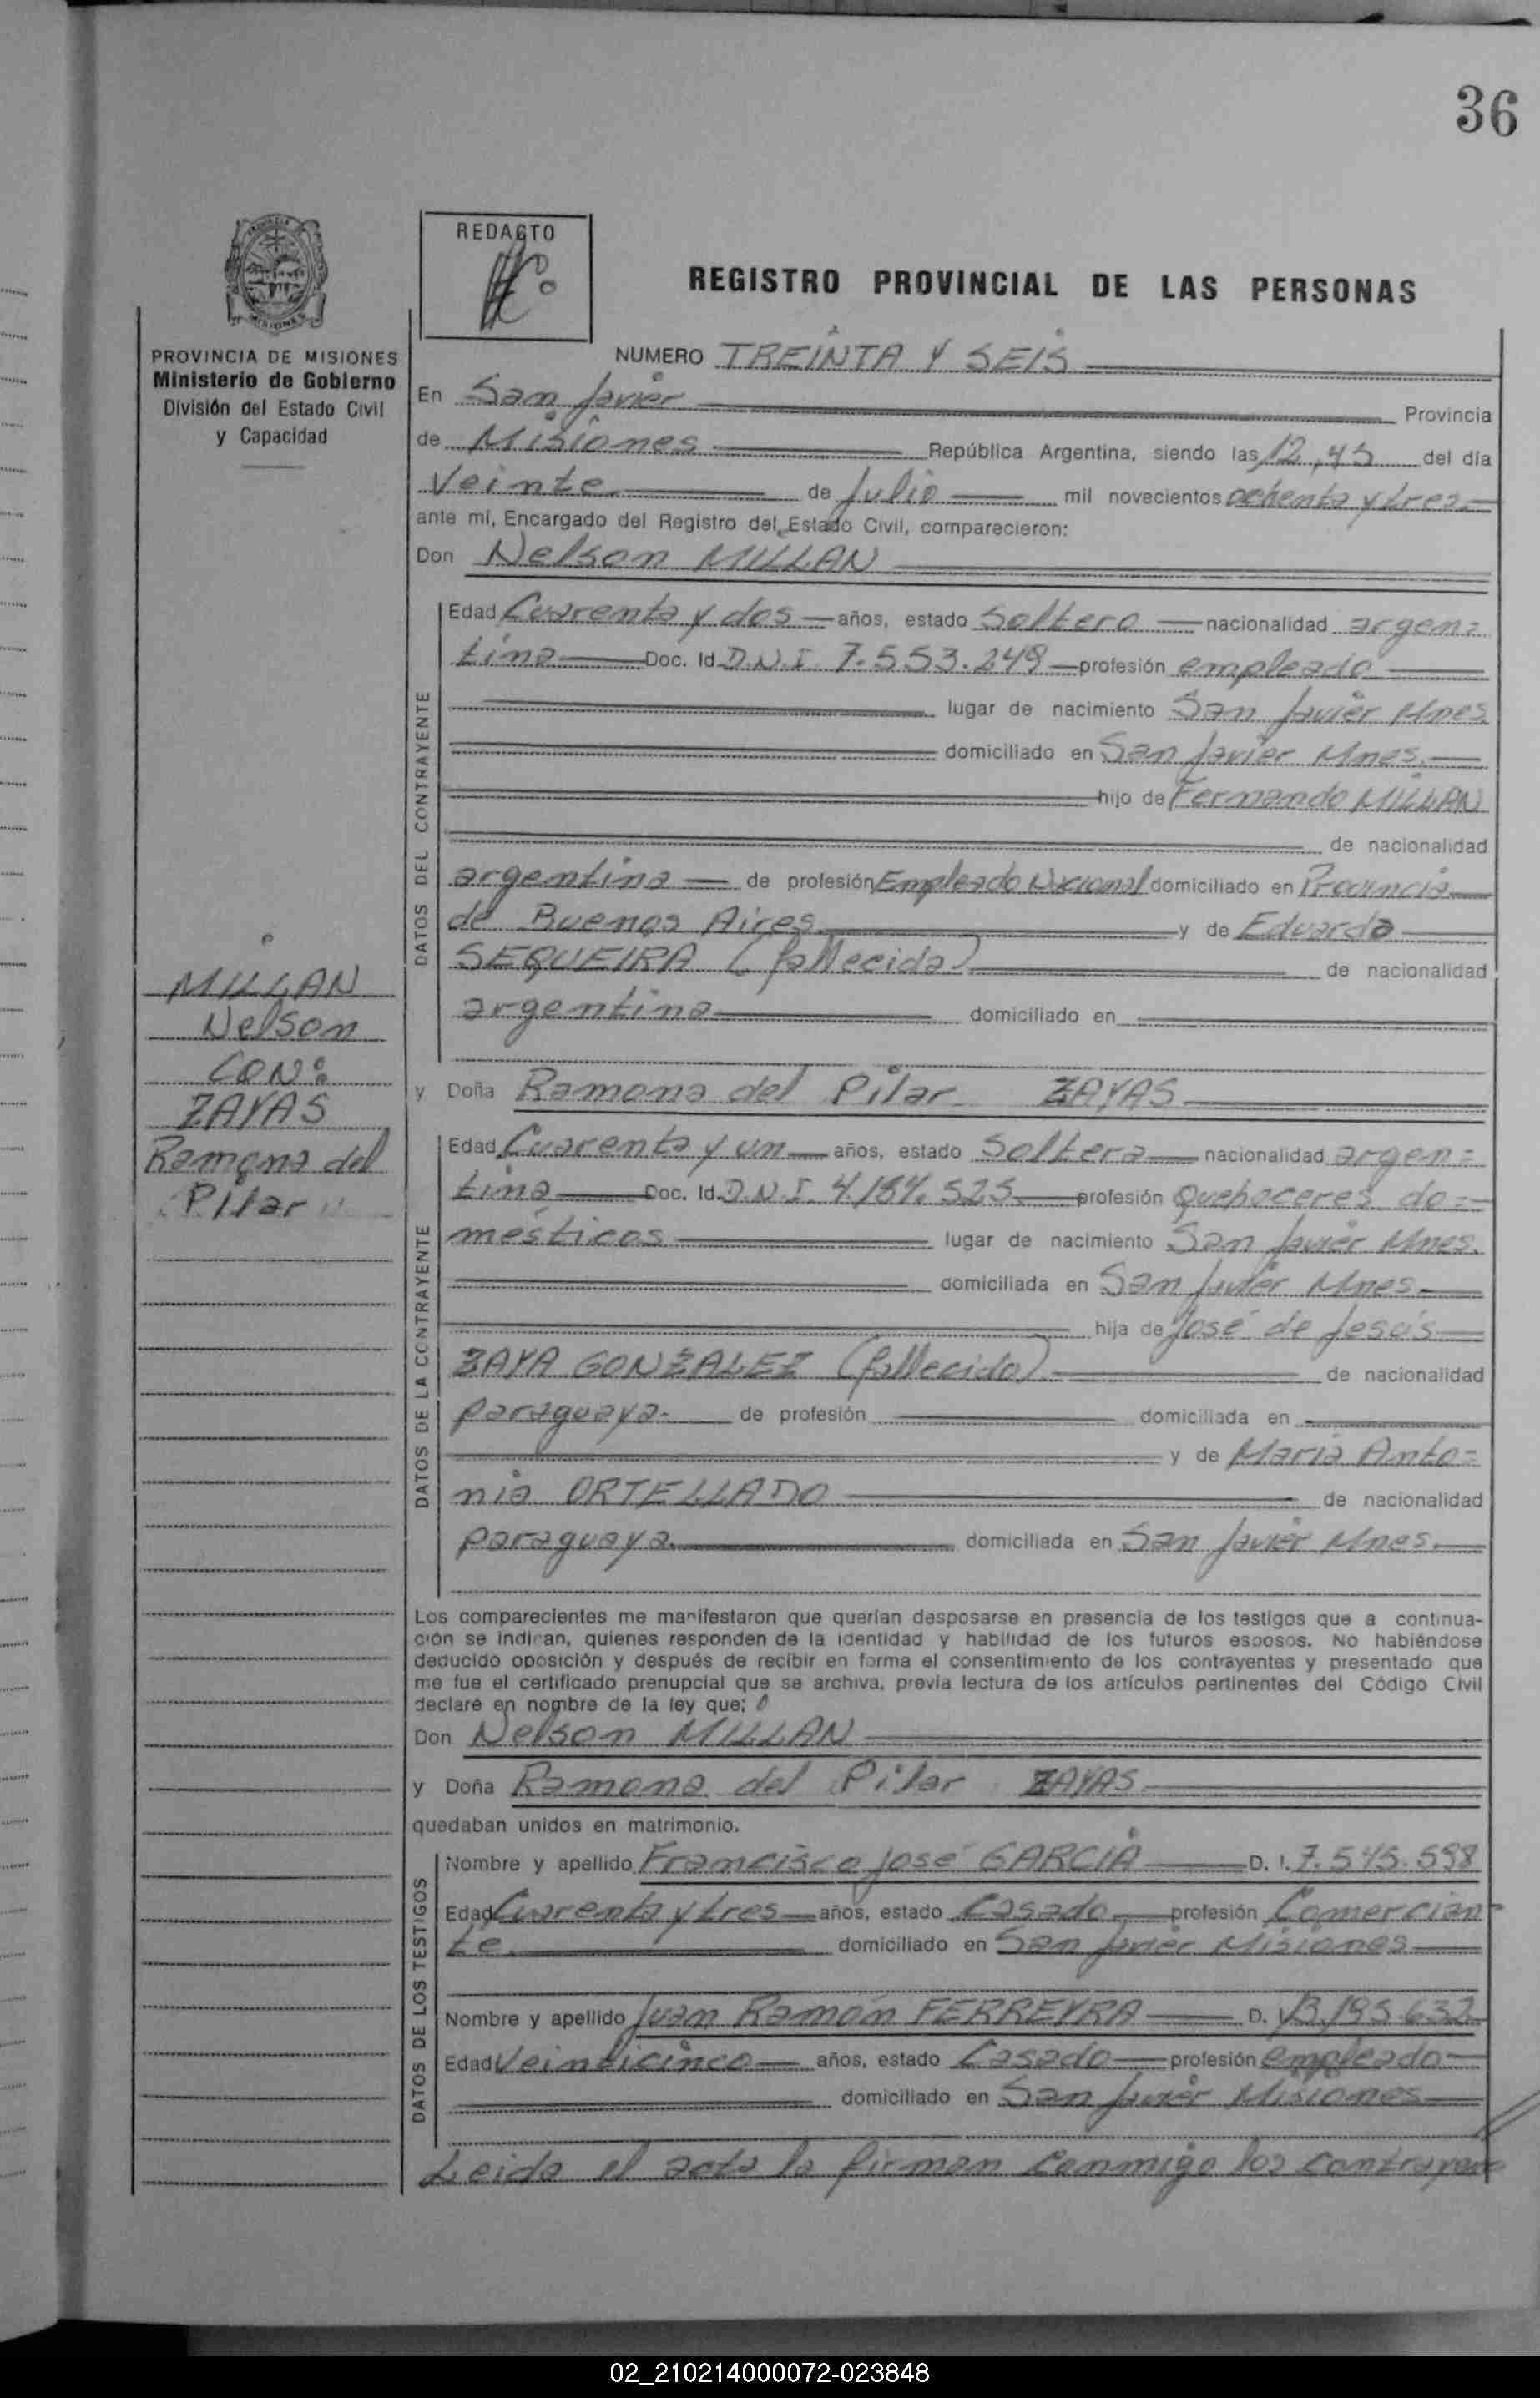 36
REDACTO
REGISTRO PROVINCIAL DE LAS PERSONAS
PROVINCIA DE MISIONES
Ministerio de Gobierno
División del Estado Civil
y Capacidad
NUMERO TREINTA Y SEIS
En San Javier Provincia
de Misiones República Argentina, siendo las 12,45 del día
Veinte de Julio mil novecientos ochenta y tres
ante mí, Encargado del Registro del Estado Civil, comparecieron:
Don Nelson MILLAN
DATOS DEL CONTRAYENTE
Edad Cuarenta y dos años, estado Soltero nacionalidad argen=
tina Doc. Id. D.N.I. 7.553.249 profesión empleado
lugar de nacimiento San Javier Mnes
domiciliado en San Javier Mnes.
hijo de Fernando MILLAN
de nacionalidad
argentina de profesión Empleado Nacional domiciliado en Provincia
de Buenos Aires y de Eduarda
SEQUEIRA (fallecida) de nacionalidad
argentina domiciliado en
MILLAN
Nelson
CON:
ZAYAS
Ramona del
Pilar
y Doña Ramona del Pilar ZAYAS
DATOS DE LA CONTRAYENTE
Edad Cuarenta y un años, estado Soltera nacionalidad argen=
tina Doc. Id. D.N.I. 4.184.525 profesión Quehaceres do=
mésticos lugar de nacimiento San Javier Mnes.
domiciliada en San Javier Mnes.
hija de José de Jesús
ZAYA GONZALEZ (fallecido) de nacionalidad
paraguaya. de profesión domiciliada en
y de María Anto=
nia ORTELLADO de nacionalidad
paraguaya domiciliada en San Javier Mnes.
Los comparecientes me manifestaron que querían desposarse en presencia de los testigos que a continua-
ción se indican, quienes responden de la identidad y habilidad de los futuros esposos. No habiéndose
deducido oposición y después de recibir en forma el consentimiento de los contrayentes y presentado que
me fue el certificado prenupcial que se archiva, previa lectura de los artículos pertinentes del Código Civil
declaré en nombre de la ley que;
Don Nelson MILLAN
y Doña Ramona del Pilar ZAYAS
quedaban unidos en matrimonio.
DATOS DE LOS TESTIGOS
Nombre y apellido Francisco José GARCIA D. I. 7.545.598
Edad Cuarenta y tres años, estado Casado profesión Comercian
te domiciliado en San Javier Misiones
Nombre y apellido Juan Ramón FERREYRA D. I. 13.195.632
Edad Veinticinco años, estado Casado profesión empleado
domiciliado en San Javier Misiones
Leida el acta la firman conmigo los contrayen
02_210214000072-023848